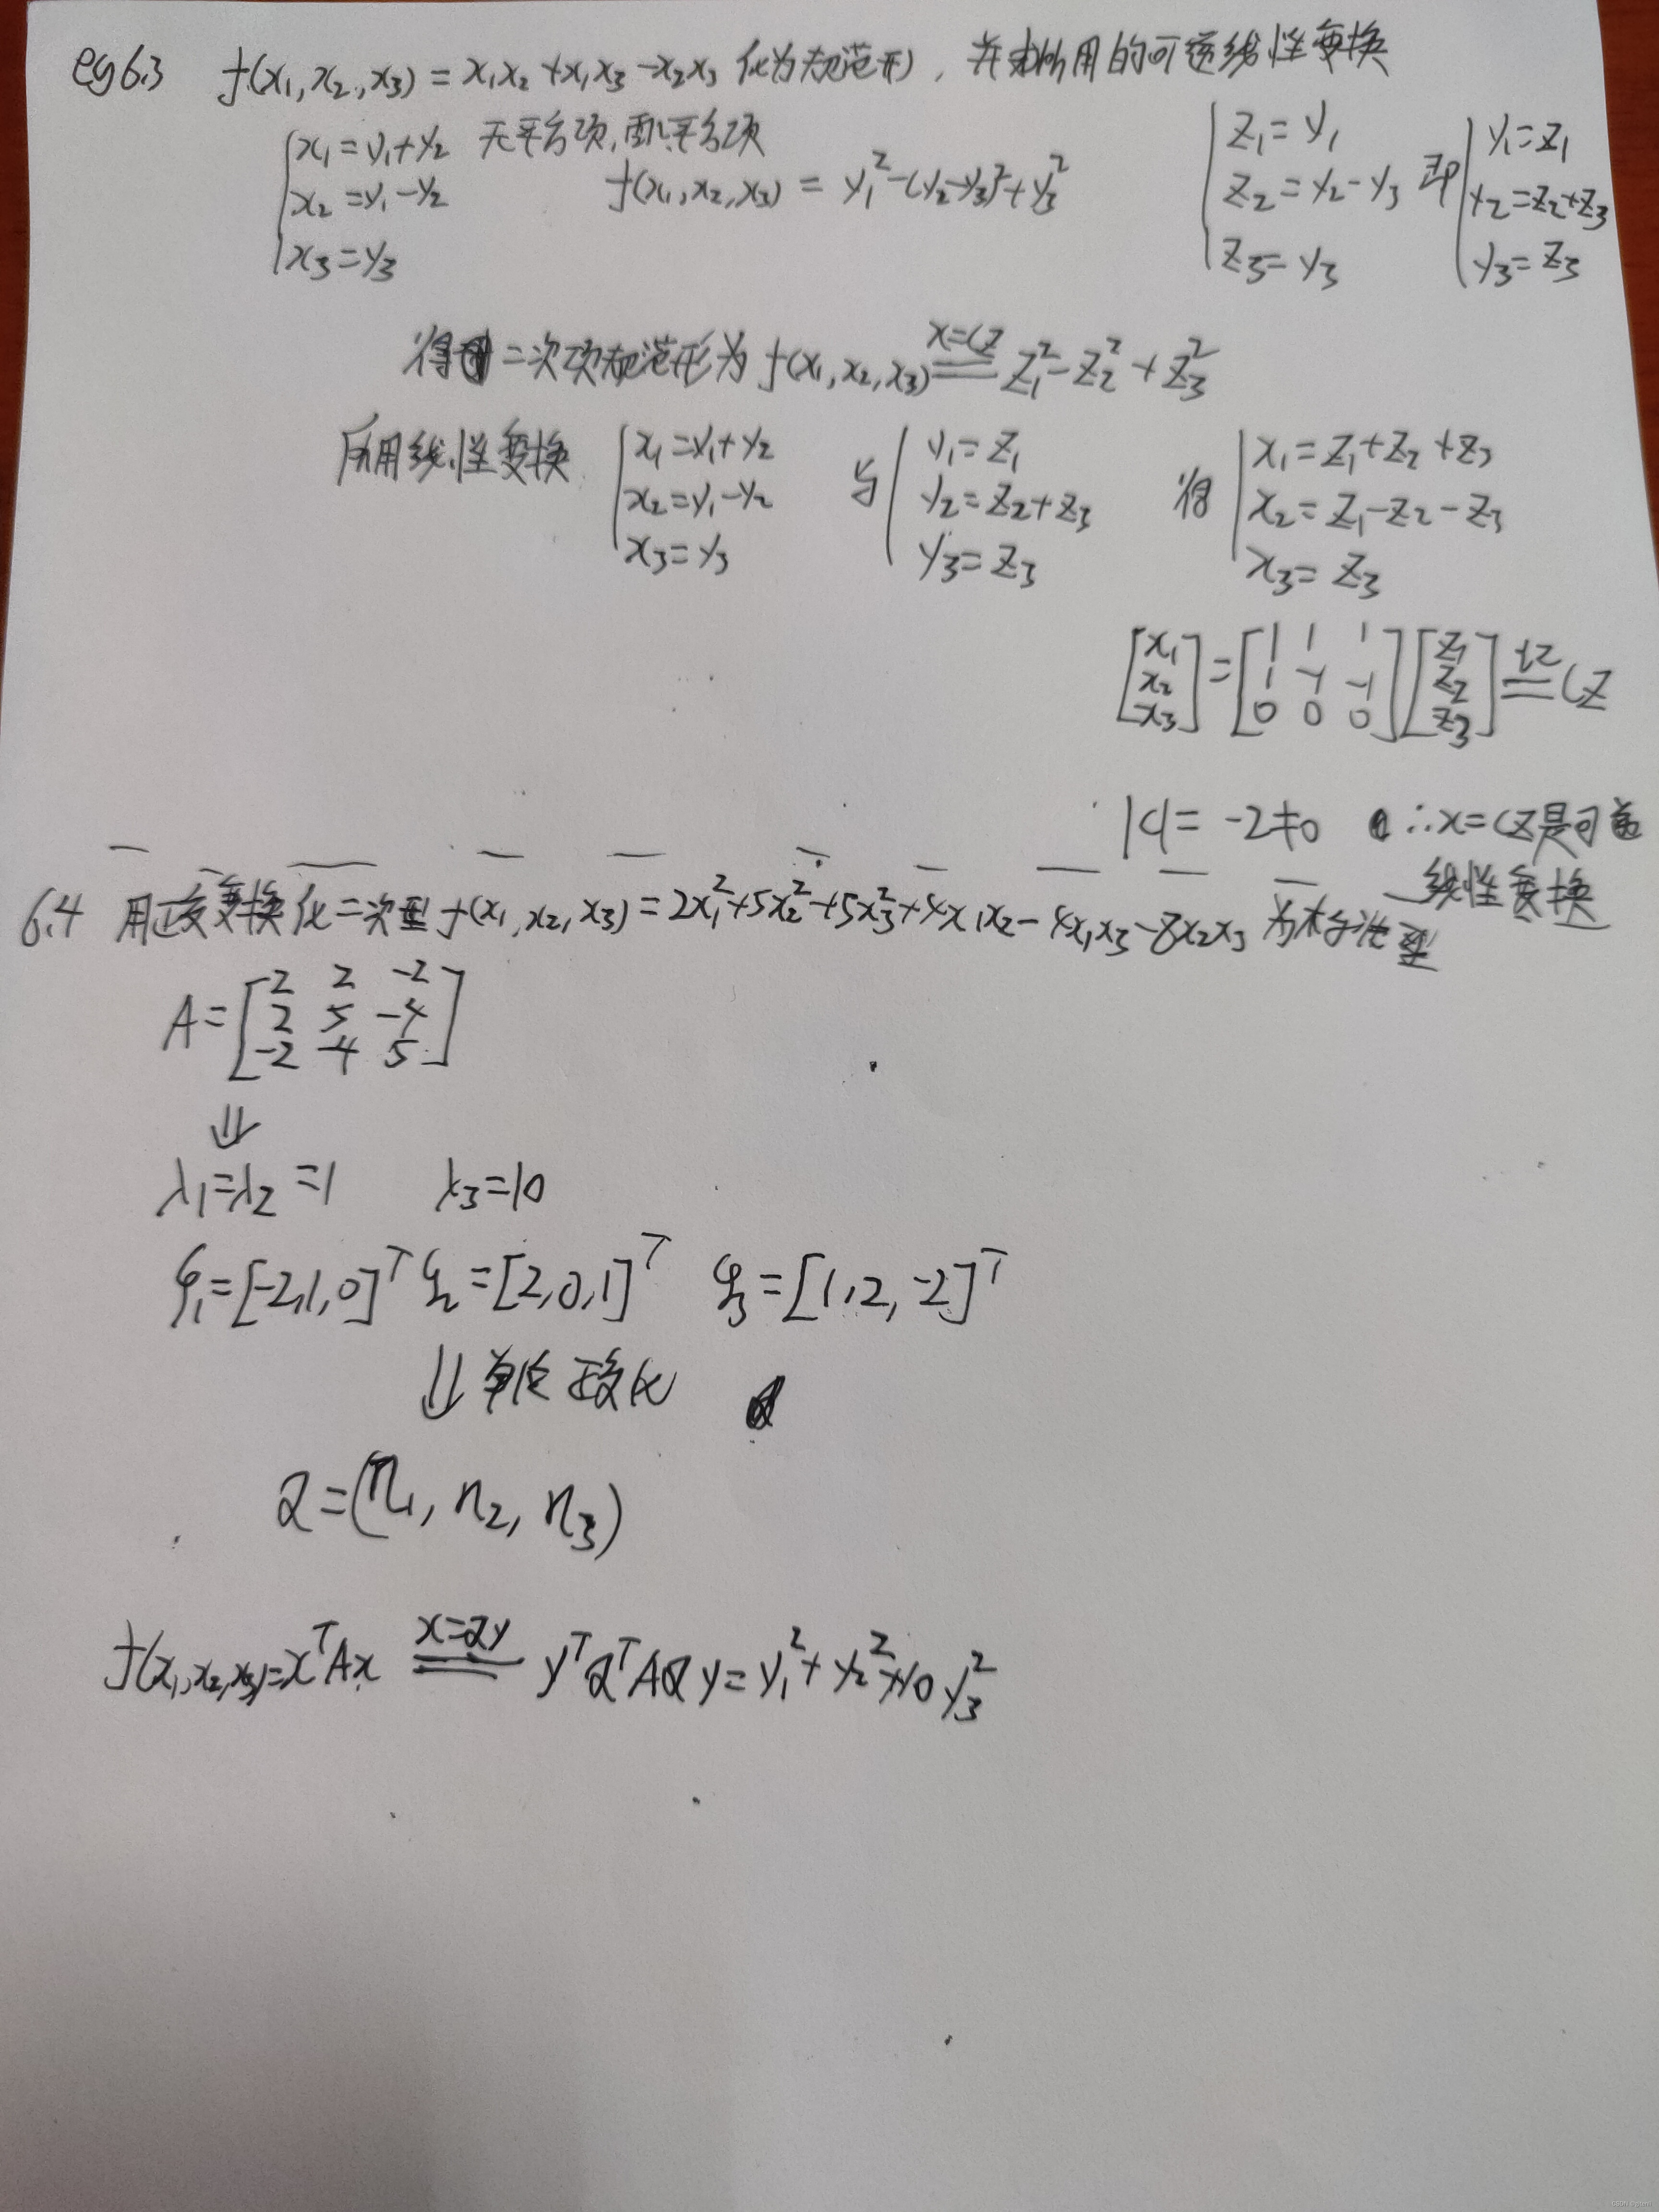 eg6.3 f(x₁,x₂,x₃) = x₁x₂+x₁x₃-x₂x₃ 化为规范形, 并求所用的可逆线性变换
{x₁=y₁+y₂ 无平方项,配平方项
x₂=y₁-y₂
x₃=y₃
f(x₁,x₂,x₃) = y₁²-(y₂-y₃)²+y₃²
{z₁=y₁
z₂=y₂-y₃
z₃=y₃
即 {y₁=z₁
y₂=z₂+z₃
y₃=z₃
得 二次项规范形为 f(x₁,x₂,x₃) x=Cz == z₁²-z₂²+z₃²
所用线性变换 {x₁=y₁+y₂
x₂=y₁-y₂
x₃=y₃
与 {y₁=z₁
y₂=z₂+z₃
y₃=z₃
得 {x₁=z₁+z₂+z₃
x₂=z₁-z₂-z₃
x₃=z₃
[x₁ x₂ x₃] = [1 1 1
1 -1 -1
0 0 0] [z₁ z₂ z₃] 记 == Cz
|C|= -2≠0 ∴x=Cz是可逆
线性变换
6.4 用正交变换化二次型 f(x₁,x₂,x₃)=2x₁²+5x₂²+5x₃²+4x₁x₂-4x₁x₃-8x₂x₃ 为标准型
A=[2 2 -2
2 5 -4
-2 -4 5]
⇓
λ₁=λ₂=1 λ₃=10
ξ₁=[-2,1,0]ᵀ ξ₂=[2,0,1]ᵀ ξ₃=[1,2,-2]ᵀ
⇓ 单位正交化
Q=(η₁,η₂,η₃)
f(x₁,x₂,x₃)=xᵀAx x=Qy == yᵀQᵀAQy=y₁²+y₂²+10y₃²
CSDN